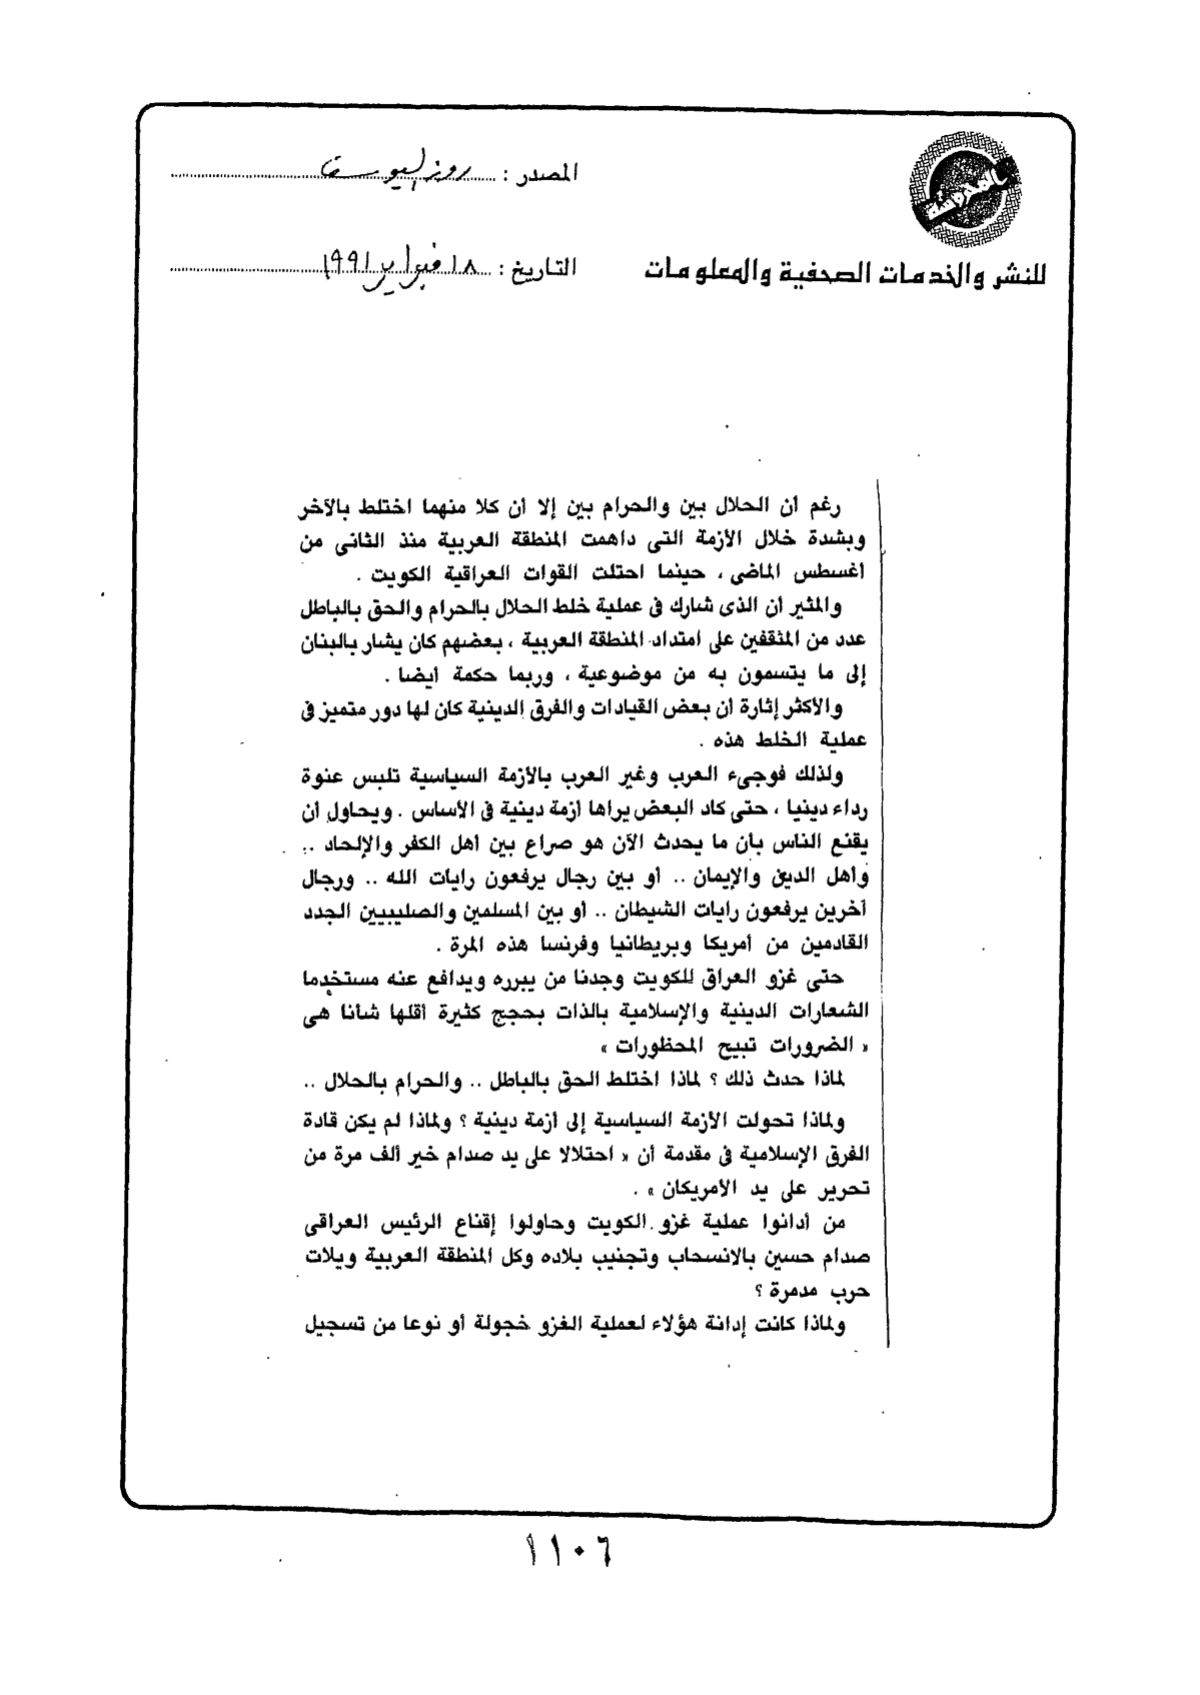 المصدر : روز اليوسف
للنشر والخدمات الصحفية والمعلومات
التاريخ : ١٨ فبراير ١٩٩١
رغم أن الحلال بين والحرام بين إلا أن كلا منهما اختلط بالآخر
وبشدة خلال الأزمة التى داهمت المنطقة العربية منذ الثانى من
أغسطس الماضى ، حينما احتلت القوات العراقية الكويت .
والمثير أن الذى شارك فى عملية خلط الحلال بالحرام والحق بالباطل
عدد من المثقفين على امتداد المنطقة العربية ، بعضهم كان يشار بالبنان
إلى ما يتسمون به من موضوعية ، وربما حكمة أيضا .
والأكثر إثارة أن بعض القيادات والفرق الدينية كان لها دور متميز فى
عملية الخلط هذه .
ولذلك فوجىء العرب وغير العرب بالأزمة السياسية تلبس عنوة
رداء دينيا ، حتى كاد البعض يراها أزمة دينية فى الأساس . ويحاول أن
يقنع الناس بأن ما يحدث الآن هو صراع بين أهل الكفر والإلحاد ..
وأهل الدين والإيمان .. أو بين رجال يرفعون رايات الله .. ورجال
آخرين يرفعون رايات الشيطان .. أو بين المسلمين والصليبيين الجدد
القادمين من أمريكا وبريطانيا وفرنسا هذه المرة .
حتى غزو العراق للكويت وجدنا من يبرره ويدافع عنه مستخدما
الشعارات الدينية والإسلامية بالذات بحجج كثيرة أقلها شأنا هى
« الضرورات تبيح المحظورات »
لماذا حدث ذلك ؟ لماذا اختلط الحق بالباطل .. والحرام بالحلال ..
ولماذا تحولت الأزمة السياسية إلى أزمة دينية ؟ ولماذا لم يكن قادة
الفرق الإسلامية فى مقدمة أن « احتلالا على يد صدام خير ألف مرة من
تحرير على يد الأمريكان » .
من أدانوا عملية غزو الكويت وحاولوا إقناع الرئيس العراقى
صدام حسين بالانسحاب وتجنيب بلاده وكل المنطقة العربية ويلات
حرب مدمرة ؟
ولماذا كانت إدانة هؤلاء لعملية الغزو خجولة أو نوعا من تسجيل
١١٠٦